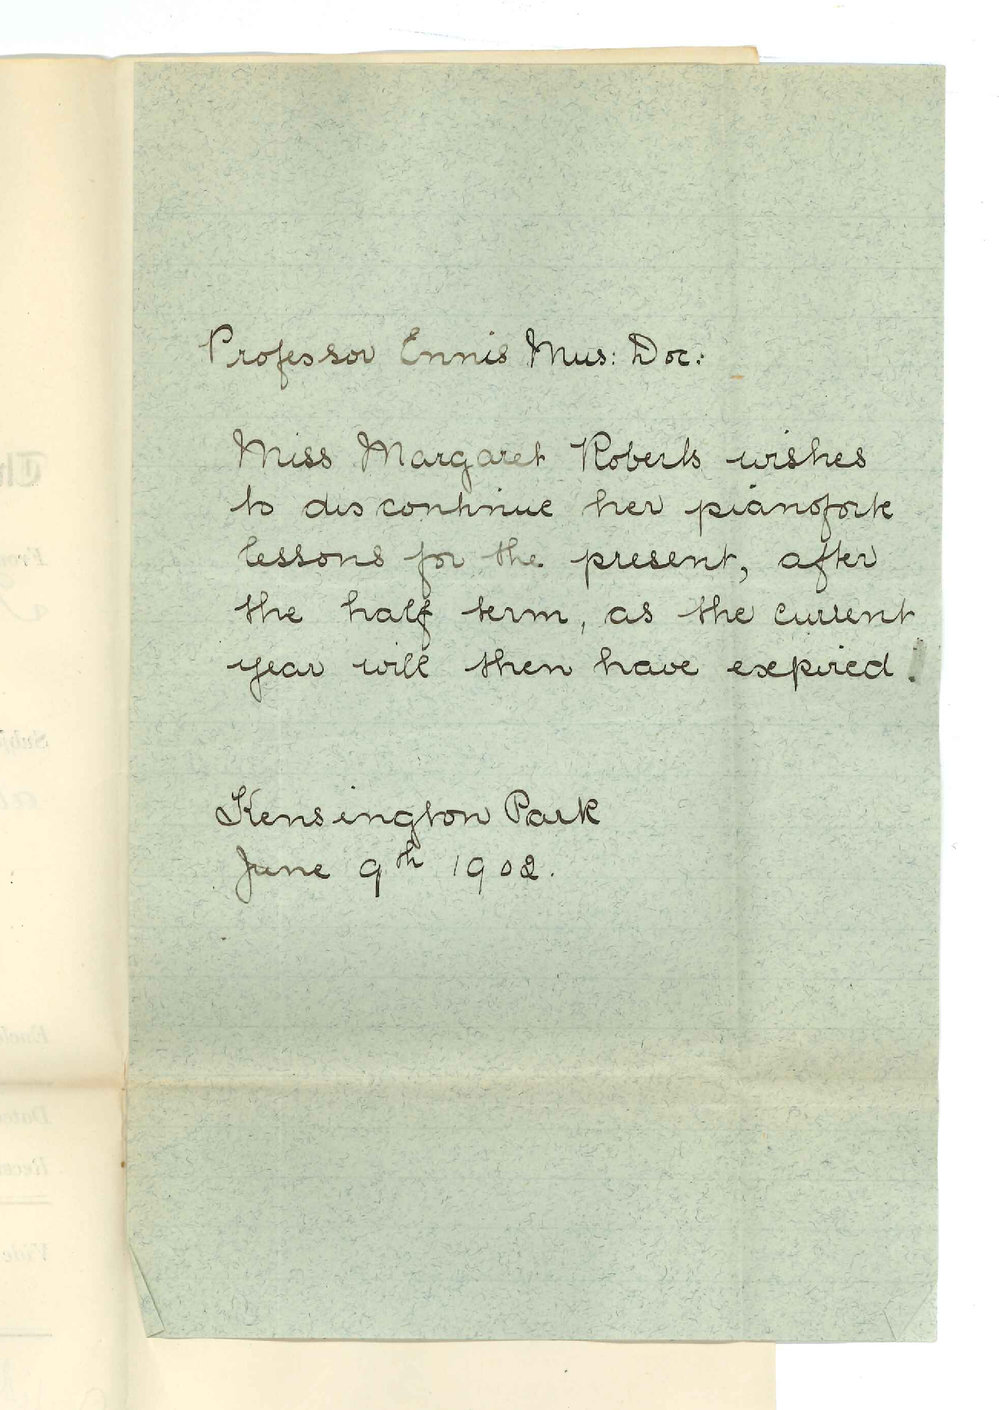 Professor Ennis Mus: Doc:
Miss Margaret Roberts wishes
to discontinue her pianoforte
lessons for the present, after
the half term, as the current
year will then have expired.
Kensington Park
June 9th 1902.